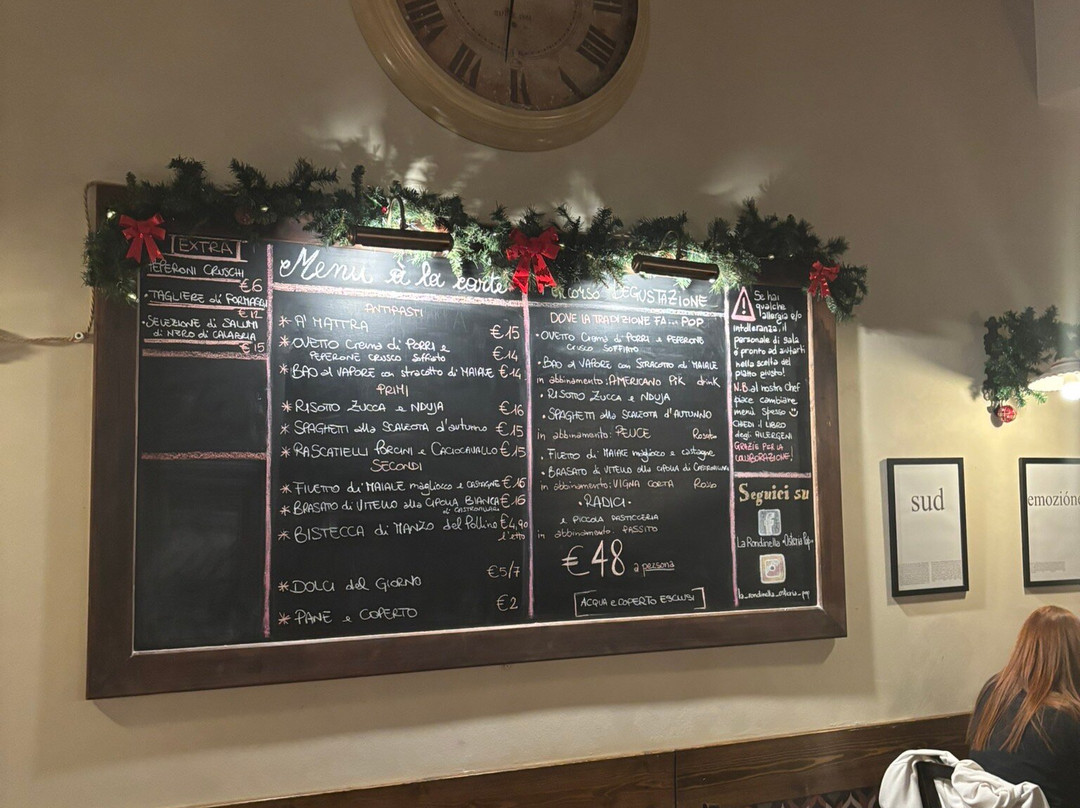 EXTRA
PEPERONI CRUSCHI
€6
TAGLIERE di FORMAGGI
€12
SELEZIONE di SALUMI
di NERO di CALABRIA
€15
Menu à la carte
ANTIPASTI
* A' MATTRA €15
* OVETTO Crema di PORRI e
PEPERONE CRUSCO Soffiato €14
* BAO al VAPORE con stracotto di MAIALE €14
PRIMI
* RISOTTO ZUCCA e NDUJA €16
* SPAGHETTI alla SCALZOTA d'autunno €15
* RASCATIELLI PORCINI e CACIOCAVALLO €15
SECONDI
* FILETTO di MAIALE magliocco e CASTAGNE €16
* BRASATO di VITELLO alla CIPOLLA BIANCA €16
di CASTROVILLARI
* BISTECCA di MANZO del Pollino €4,90
l'etto
* DOLCI del GIORNO €5/7
* PANE e COPERTO €2
DEGUSTAZIONE
DOVE LA TRADIZIONE FA... POP
• OVETTO Crema di PORRI e PEPERONE
CRUSCO SOFFIATO
• BAO al VAPORE con STRACOTTO di MAIALE
in abbinamento: AMERICANO Pik drink
• RISOTTO ZUCCA e NDUJA
• SPAGHETTI alla SCALZOTA d'AUTUNNO
in abbinamento: PEUCE Rosato
• FILETTO di MAIALE magliocco e castagne
• BRASATO di VITELLO alla CIPOLLA di CASTROVILLARI
in abbinamento: VIGNA CORTA Rosso
• RADICI •
e PICCOLA PASTICCERIA
in abbinamento: PASSITO
€48 a persona
ACQUA e COPERTO ESCLUSI
Se hai
qualche
allergia e/o
intolleranza, il
personale di sala
è pronto ad aiutarti
nella scelta del
piatto giusto!
N.B. al nostro Chef
piace cambiare
menù spesso
CHIEDI IL LIBRO
degli ALLERGENI
GRAZIE PER LA
COLLABORAZIONE!
Seguici su
La Rondinella Osteria Pop
la_rondinella_osteria_pop
sud
emozióne